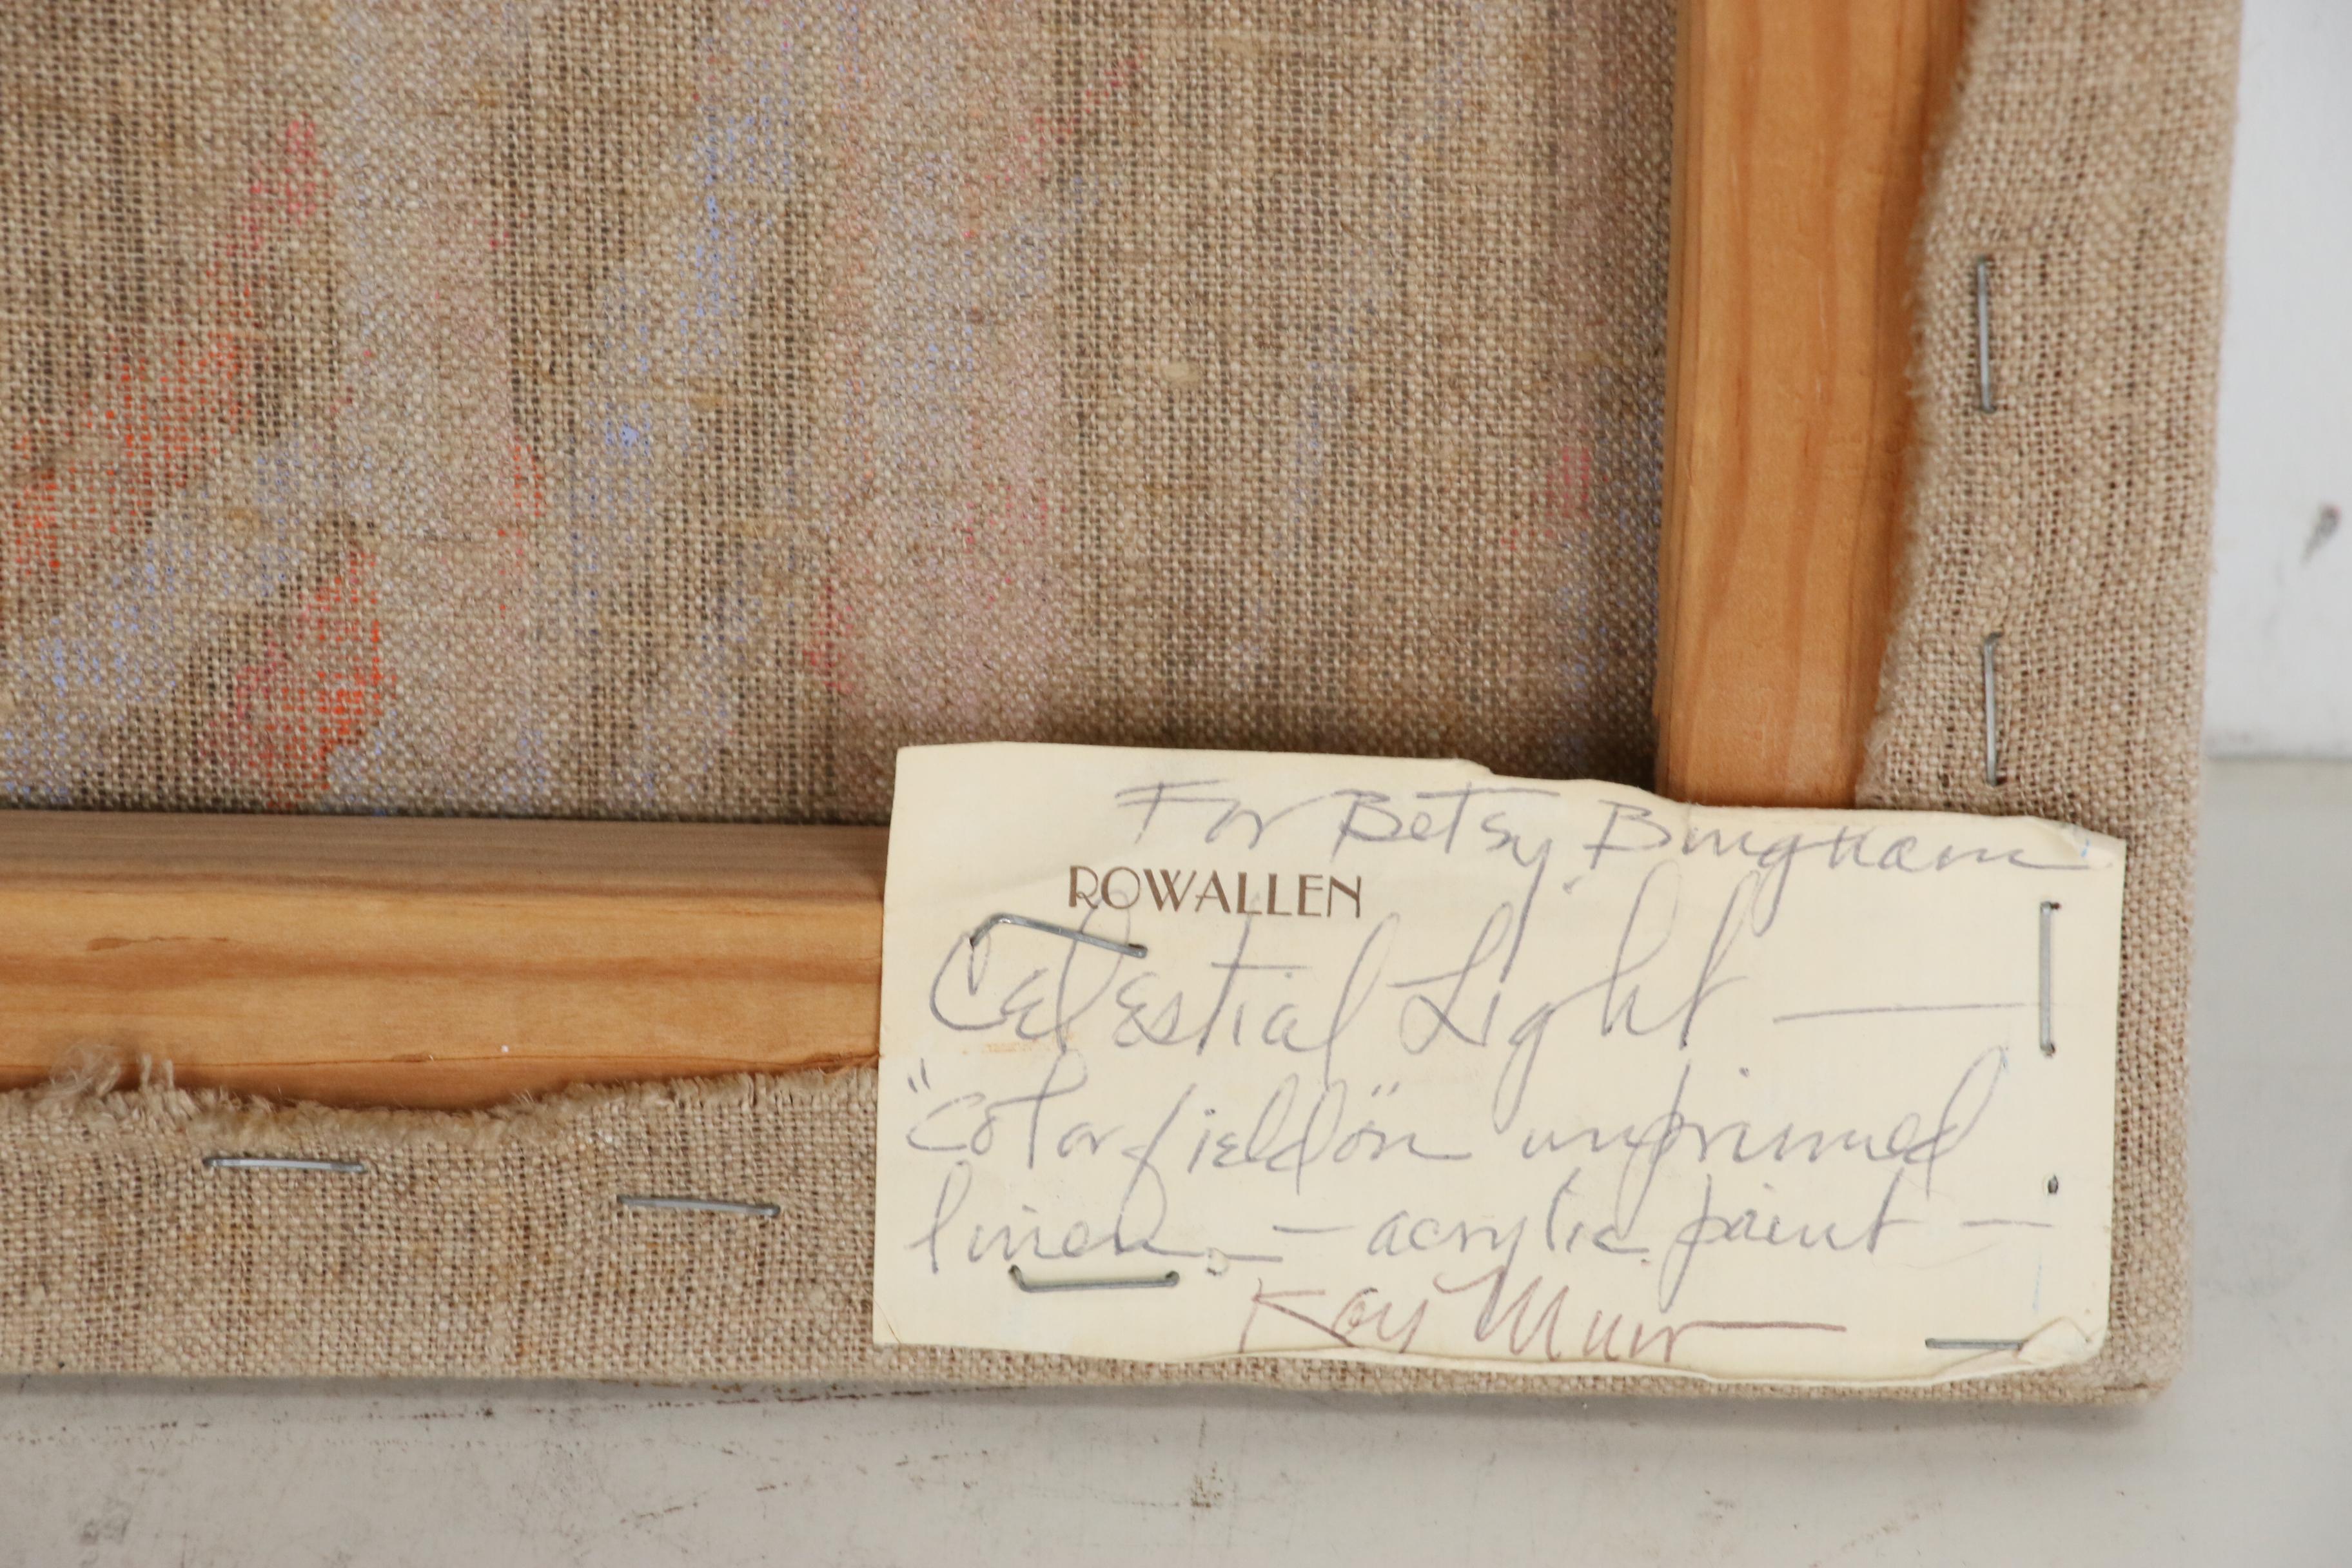 For Betsy Bingham
ROWALLEN
Celestial Light —
"Colorfield" on unprimed
linen — acrylic paint —
Kay Muir